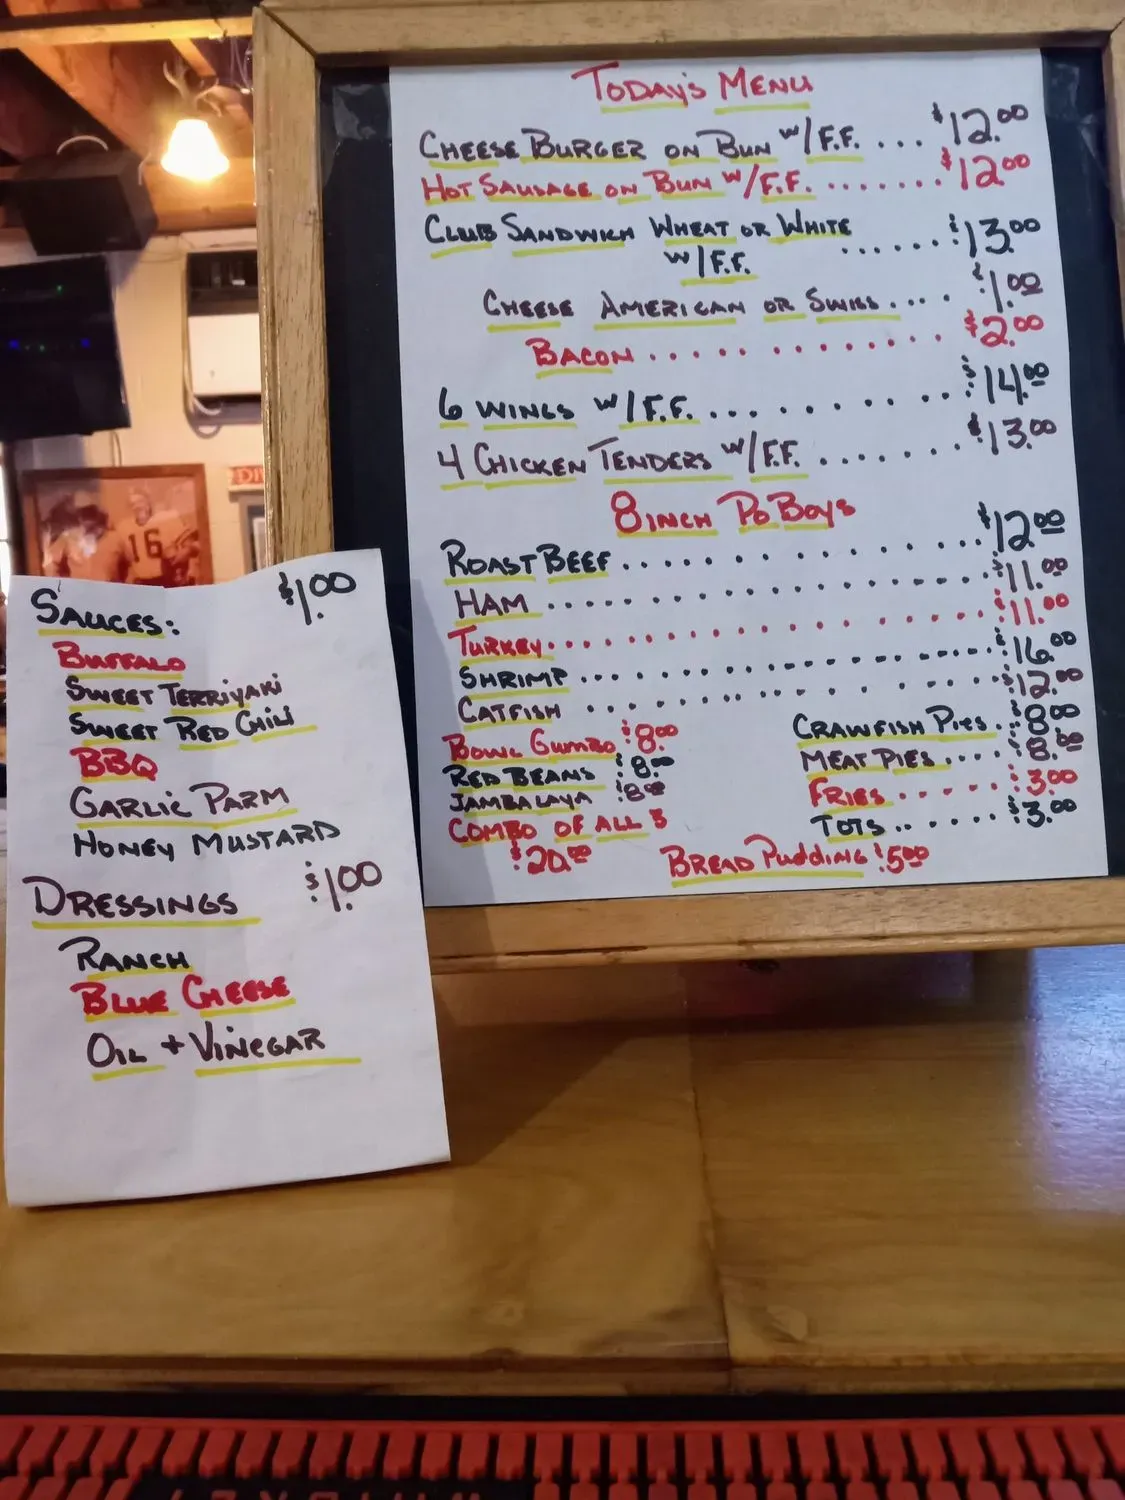 TODAY'S MENU
CHEESE BURGER ON BUN W/F.F. .... $12.00
HOT SAUSAGE ON BUN W/F.F. ....... $12.00
CLUB SANDWICH WHEAT OR WHITE ...... $13.00
W/F.F.
CHEESE AMERICAN OR SWISS .... $1.00
BACON ............. $2.00
6 WINGS W/F.F. .......... $14.00
4 CHICKEN TENDERS W/F.F. ....... $13.00
8 INCH PO BOYS
ROAST BEEF ............... $12.00
HAM .................. $11.00
TURKEY .................. $11.00
SHRIMP .................. $16.00
CATFISH ................ $12.00
BOWL GUMBO $8.00
RED BEANS $8.00
JAMBALAYA $8.00
COMBO OF ALL 3
$20.00
CRAWFISH PIES .. $8.00
MEAT PIES .... $8.00
FRIES ...... $3.00
TOTS ....... $3.00
BREAD PUDDING $5.00
SAUCES: $1.00
BUFFALO
SWEET TERRIYAKI
SWEET RED CHILI
BBQ
GARLIC PARM
HONEY MUSTARD
DRESSINGS $1.00
RANCH
BLUE CHEESE
OIL + VINEGAR
16